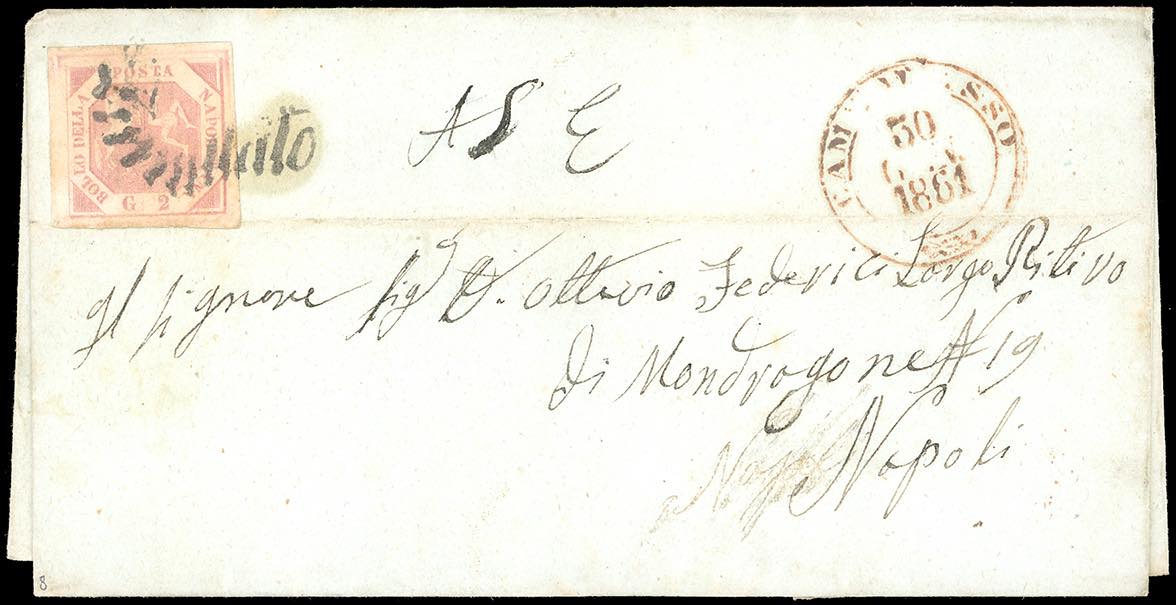 BOLLO DELLA POSTA NAPOLETANA
G 2
Annullato
A S E
CAMPOBASSO
30
1861
Al Signore Sig D. Ottavio Federici Largo Ritiro
Di Mondragone N 19
Nap Napoli
8